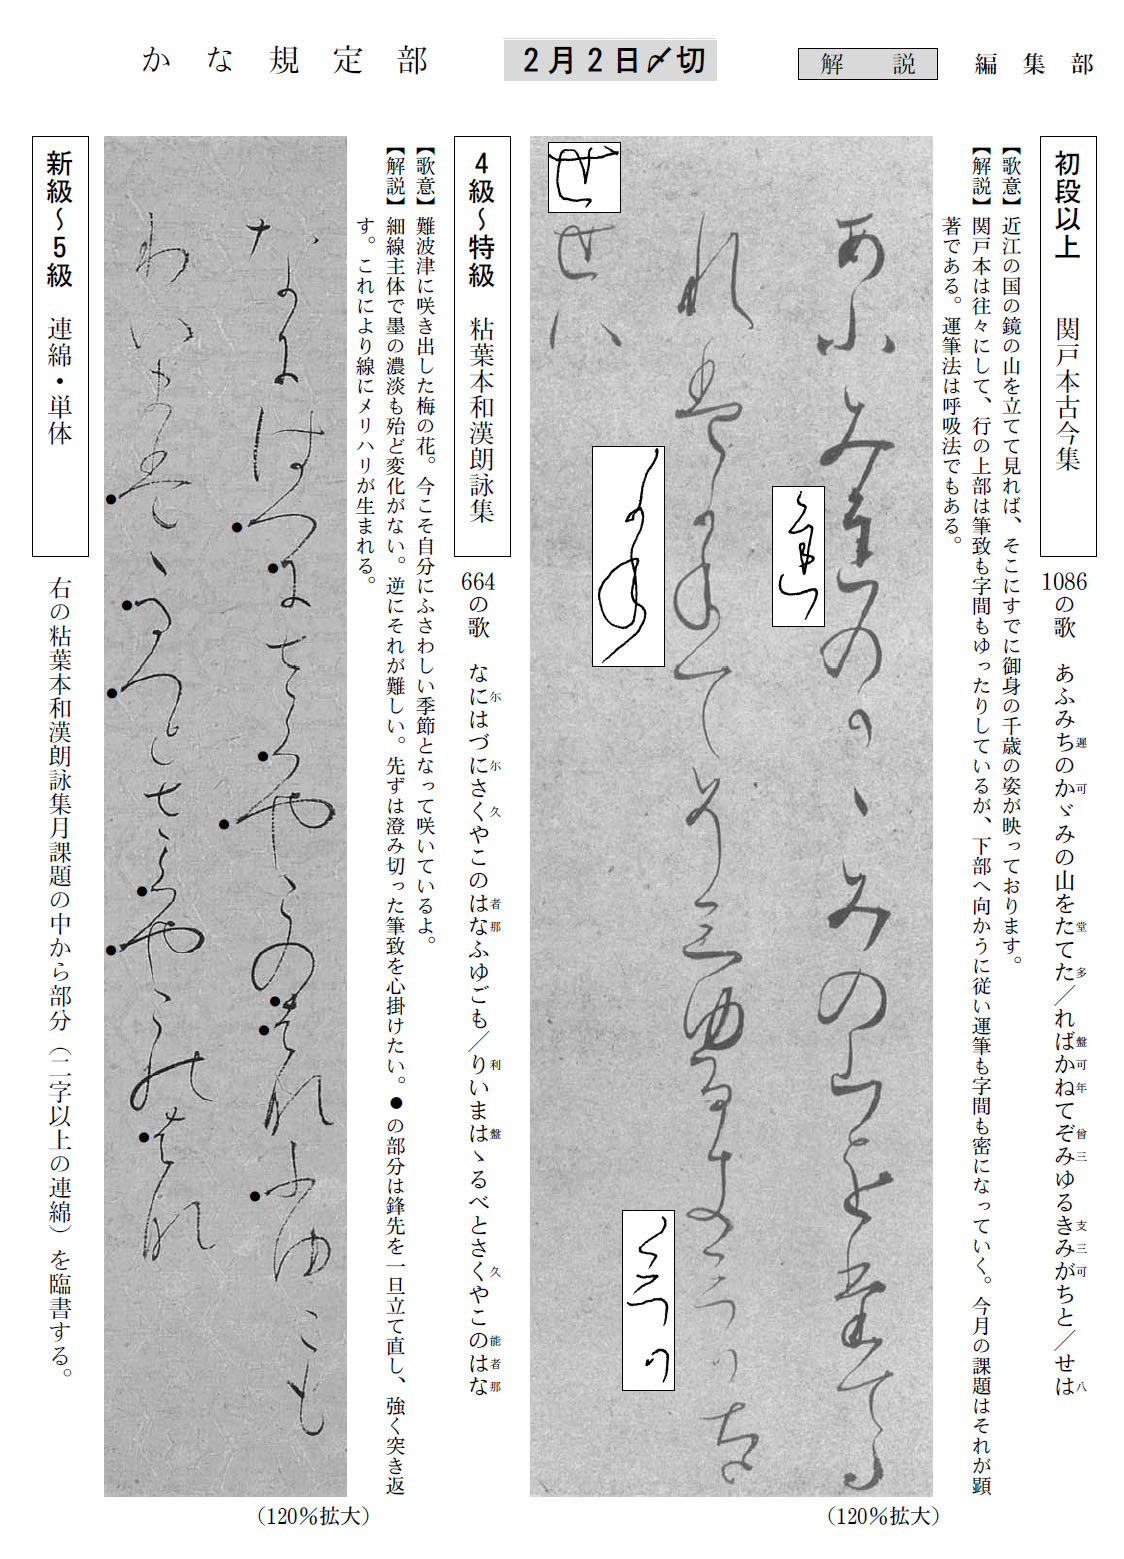 かな規定部
２月２日〆切
解説
編集部
初段以上　関戸本古今集
1086の歌　あふみちのかゞみの山をたてた／ればかねてぞみゆるきみがちと／せは
遅 可 堂 多 盤 可 年 曾 三 支 三 可 八
【歌意】近江の国の鏡の山を立てて見れば、そこにすでに御身の千歳の姿が映っております。
【解説】関戸本は往々にして、行の上部は筆致も字間もゆったりしているが、下部へ向かうに従い運筆も字間も密になっていく。今月の課題はそれが顕
著である。運筆法は呼吸法でもある。
（120％拡大）
4級～特級　粘葉本和漢朗詠集
664の歌　なにはづにさくやこのはなふゆごも／りいまはゝるべとさくやこのはな
尓 尓 久 者 那 利 盤 久 能 者 那
【歌意】難波津に咲き出した梅の花。今こそ自分にふさわしい季節となって咲いているよ。
【解説】細線主体で墨の濃淡も殆ど変化がない。逆にそれが難しい。先ずは澄み切った筆致を心掛けたい。●の部分は鋒先を一旦立て直し、強く突き返
す。これにより線にメリハリが生まれる。
（120％拡大）
新級～5級　連綿・単体
右の粘葉本和漢朗詠集月課題の中から部分（二字以上の連綿）を臨書する。